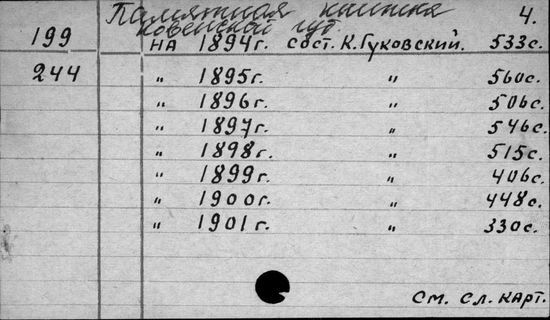 Памятная книжка 4.
Ковенской губ.
199 на 1894г. сост. К. Гуковский. 533с.
244 " 1895г. " 560с.
" 1896г. " 506с.
" 1897г. " 546с.
" 1898г. " 515с.
" 1899г. " 406с.
" 1900г. " 448с.
" 1901г. " 330с.
См. сл. карт.